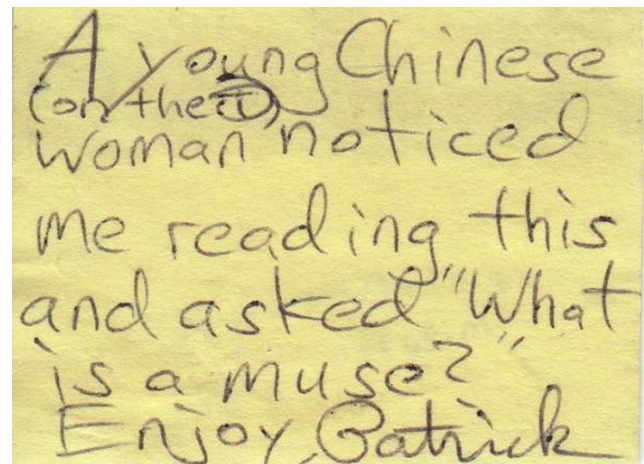 A young Chinese
(on the Ⓣ)
woman noticed
me reading this
and asked "What
is a muse?"
Enjoy, Patrick